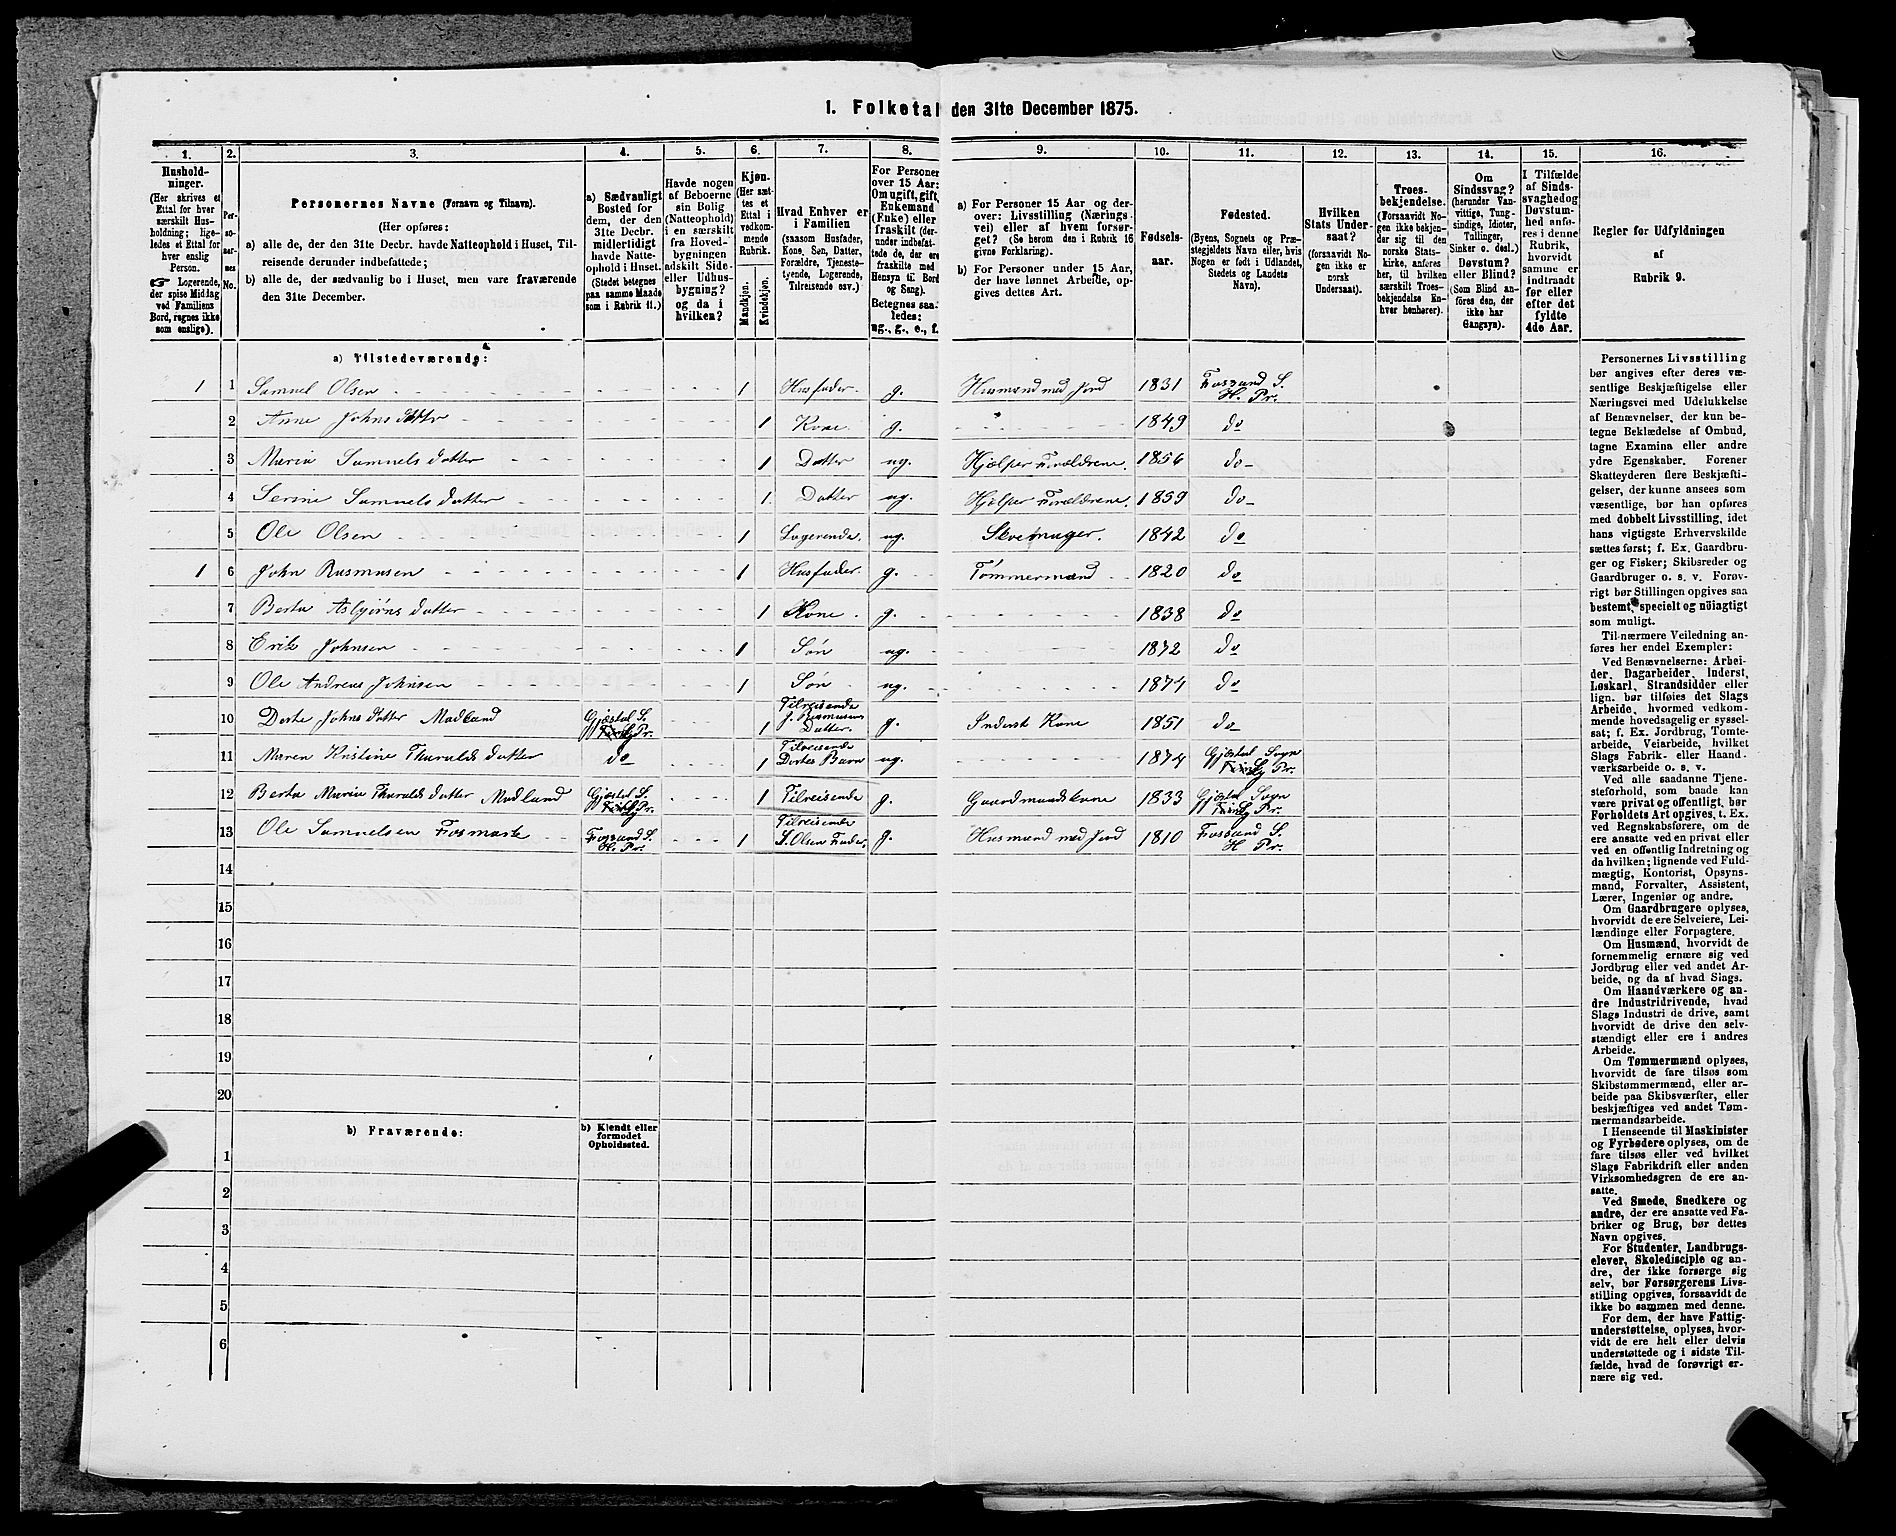 I. Folketal den 31te December 1875.
1. 2. 3. 4. 5. 6. 7. 8. 9. 10. 11. 12. 13. 14. 15. 16.
Hushold-
ninger.
(Her skrives et
Ettal for hver
særskilt Hus-
holdning; lige-
ledes et Ettal for
hver enslig
Person.
☞ Logerende,
der spise Middag
ved Familiens
Bord, regnes ikke
som enslige).
Per-
so-
ner-
nes
No.
Personernes Navne (Fornavn og Tilnavn).
(Her opføres:
a) alle de, der den 31te Decbr. havde Natteophold i Huset, Til-
reisende derunder indbefattede;
b) alle de, der sædvanlig bo i Huset, men vare fraværende
den 31te December.
a) Sædvanligt
Bosted for
dem, der den
31te Decbr.
midlertidigt
havde Natte-
ophold i Huset.
(Stedet betegnes
paa samme Maade
som i Rubrik 11.)
Havde nogen
af Beboerne
sin Bolig
(Natteophold)
i en særskilt
fra Hoved-
bygningen
adskilt Side-
eller Udhus-
bygning?
og da i
hvilken?
Kjøn.
(Her sæt-
tes et
Ettal i
vedkom-
mende
Rubrik.
Mandkjøn.
Kvindekjøn.
Hvad Enhver er
i Familien
(saasom Husfader,
Kone, Søn, Datter,
Forældre, Tjeneste-
tyende, Logerende,
Tilreisende osv.)
For Personer
over 15 Aar:
Om ugift, gift,
Enkemand
(Enke) eller
fraskilt (der-
under indbefat-
tede de, der ere
fraskilte med
Hensyn til Bord
og Seng).
Betegnes saa-
ledes:
ug., g., e., f.
a) For Personer 15 Aar og der-
over: Livsstilling (Nærings-
vei) eller af hvem forsør-
get? (Se herom den i Rubrik 16
givne Forklaring).
b) For Personer under 15 Aar,
der have lønnet Arbeide, op-
gives dettes Art.
Fødsels-
aar.
Fødested.
(Byens, Sognets og Præ-
stegjeldets Navn eller, hvis
Nogen er født i Udlandet,
Stedets og Landets
Navn).
Hvilken
Stats Under-
saat?
(forsaavidt No-
gen ikke er
norsk
Undersaat).
Troes-
bekjendelse.
(Forsaavidt No-
gen ikke bekjen-
der sig til den
norske Stats-
kirke, anføres
her, til hvilken
særskilt Troes-
bekjendelse En-
hver henhører).
Om
Sindssvag?
(herunder Van-
vittige, Tung-
sindige, Idioter,
Tullinger,
Sinker o. desl.)
Døvstum?
eller Blind?
(Som Blind an-
føres den, der
ikke har
Gangsyn).
I Tilfælde
af Sinds-
svaghed og
Døvstum-
hed anfø-
res i denne
Rubrik,
hvorvidt
samme er
indtraadt
før eller
efter det
fyldte
4de Aar.
Regler for Udfyldningen
af
Rubrik 9.
a) Tilstedeværende:
1 1 Samuel Olsen 1 Husfader g. Husmand med Jord 1831 Fossand S. H. Pr.
2 Anne Johnsdatter 1 Kone g. 1849 do
3 Maria Samuelsdatter 1 Datter ug. Hjælper Forældrene. 1856 do
4 Serine Samuelsdatter 1 Datter ug. Hjælper Forældrene. 1859 do
5 Ole Olsen 1 Logerende. ug. 1842 do
1 6 John Rasmusen 1 Husfader g. Tømmermand 1820 do
7 Berta Asbjørnsdatter 1 Kone g. 1838 do
8 Erik Johnsen 1 Søn ug. 1872 do
9 Ole Andreas Johnsen 1 Søn ug. 1874 do
10 Dorte Johnsdatter Madland Gjæstal S. Pr. 1 Tilreisende J. Rasmusens Datter. g. Inderst Kone 1851 do
11 Maren Kristine Thuraldsdatter do 1 Tilreisende Dortes Barn ug. 1874 Gjæstal Sogn Pr.
12 Berta Maria Thuraldsdatter Madland Gjæstal S. Pr. 1 Tilreisende g. Gaardmandskone 1833 Gjæstal Sogn Pr.
13 Ole Samuelsen Fosmark Fossand S. H. Pr. 1 Tilreisende S. Olsen Fader. g. Husmand med Jord 1810 Fossand S. H Pr.
14
15
16
17
18
19
20
b) Fraværende:
b) Kjendt eller
formodet
Opholdssted.
1
2
3
4
5
6
Personernes Livsstilling
bør angives efter deres væ-
sentlige Beskjæftigelse eller
Næringsvei med Udelukkelse
af Benævnelser, der kun be-
tegne Beklædelse af Ombud,
tagne Examina eller andre
ydre Egenskaber. Forener
Skatteyderen flere Beskjæfti-
gelser, der kunne ansees som
væsentlige, bør han opføres
med dobbelt Livsstilling, idet
hans vigtigste Erhvervskilde
sættes først; f. Ex. Gaardbru-
ger og Fisker; Skibsreder og
Gaardbruger o. s. v. Forøv-
rigt bør Stillingen opgives saa
bestemt, specielt og nöiagtigt
som muligt.
Til nærmere Veiledning an-
føres her endel Exempler:
Ved Benævnelserne: Arbei-
der, Dagarbeider, Inderst,
Løskarl, Strandsidder eller
lign. bør tilføies det Slags
Arbeide, hvormed vedkom-
mende hovedsagelig er syssel-
sat; f. Ex. Jordbrug, Tomte-
arbeide, Veiarbeide, hvilket
Slags Fabrik- eller Haand-
værksarbeide o. s. v.
Ved alle saadanne Tjene-
steforhold, som baade kan
være privat og offentligt, bør
Forholdets Art opgives, t. Ex.
ved Regnskabsførere, om de
ere ansatte ved en privat eller
ved en offentlig Indretning og
da hvilken; lignende ved Fuld-
mægtig, Kontorist, Opsyns-
mand, Forvalter, Assistent,
Lærer, Ingeniør og andre.
Om Gaardbrugere oplyses,
hvorvidt de ere Selveiere, Lei-
lændinge eller Forpagtere.
Om Husmænd, hvorvidt de
fornemmelig ernære sig ved
Jordbrug eller ved andet Ar-
beide, og da af hvad Slags.
Om Haandværkere og an-
dre Industridrivende, hvad
Slags Industri de drive, samt
hvorvidt de drive den selv-
stændigt eller ere i andres
Arbeide.
Om Tømmermænd oplyses,
hvorvidt de fare tilsøs som
Skibstømmermænd, eller ar-
beide paa Skibsværfter, eller
beskjæftiges ved andet Tøm-
mermandsarbeide.
I Henseende til Maskinister
og Fyrbødere oplyses, om de
fare tilsøs eller ved hvilket
Slags Fabrikdrift eller anden
Virksomhedsgren de ere an-
satte.
Ved Smede, Snedkere og
andre, der ere ansatte ved Fa-
briker og Brug, bør dettes
Navn opgives.
For Studenter, Landbrugs-
elever, Skoledisciple og an-
dre, der ikke forsørge sig
selv, bør Forsørgerens Livs-
stilling opgives, forsaavidt de
ikke bo sammen med denne.
For dem, der have Fattig-
understøttelse, oplyses, hvor-
vidt de ere helt eller delvis
understøttede og i sidste Til-
fælde, hvad de forøvrigt er-
nære sig ved.